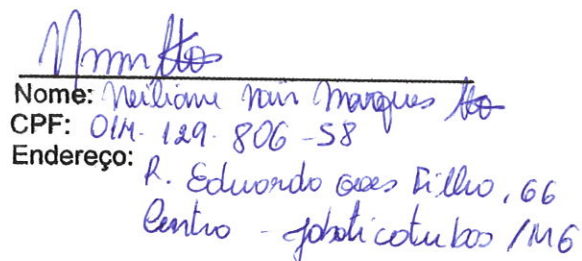 Nome: Neiliane Marques
CPF: 014.129.806-58
Endereço:
R. Eduardo Goes Filho, 66
Centro - Jaboticatubas /MG